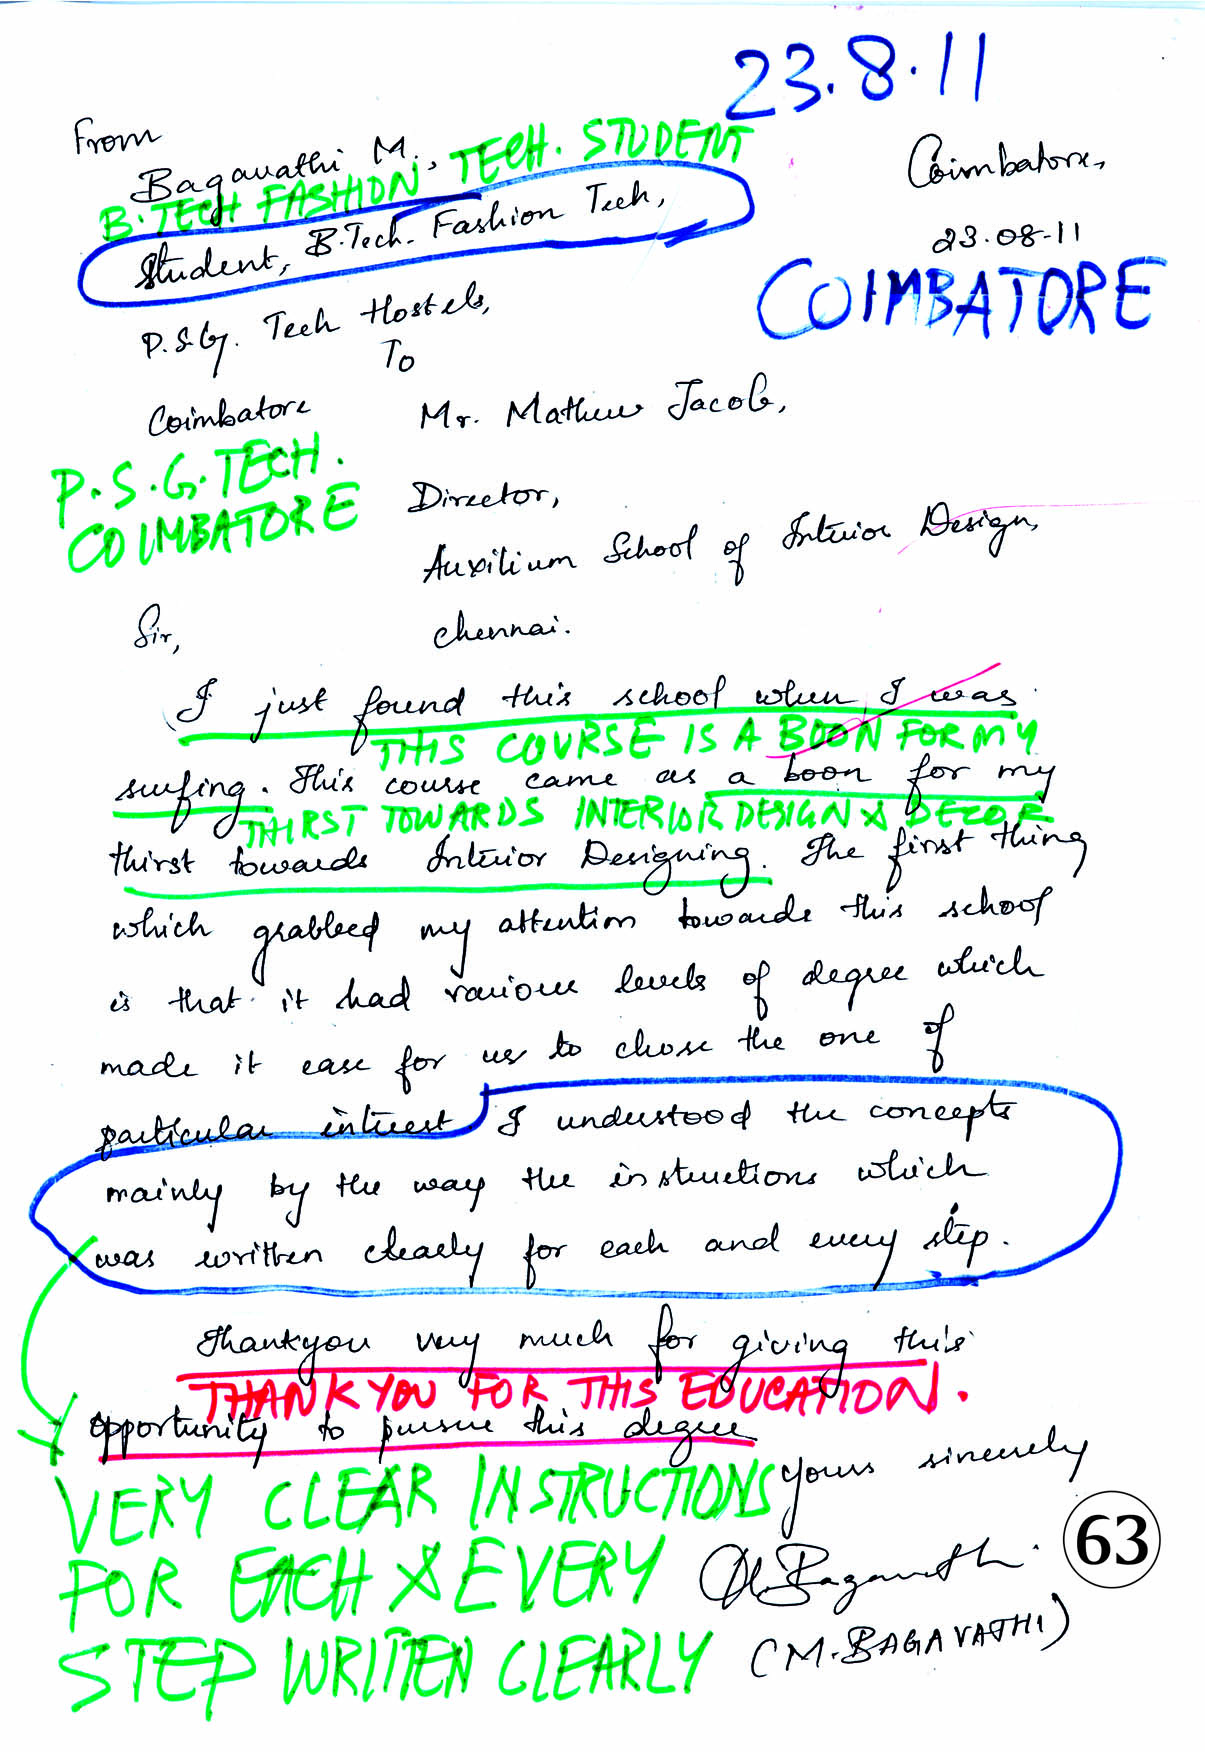 23.8.11
From
Bagavathi M.,
B.TECH FASHION TECH. STUDENT
Coimbatore,
Student, B.Tech. Fashion Tech,
23.08.11
COIMBATORE
P.S.G. Tech Hostels,
To
Coimbatore
Mr. Mathew Jacob,
P.S.G.TECH.
COIMBATORE
Director,
Auxilium School of Interior Design,
Sir,
Chennai.
I just found this school when I was
THIS COURSE IS A BOON FOR MY
surfing. This course came as a boon for my
THIRST TOWARDS INTERIOR DESIGN & DECOR
thirst towards Interior Designing. The first thing
which grabbed my attention towards this school
is that it had various levels of degree which
made it ease for us to chose the one of
particular interest I understood the concepts
mainly by the way the instructions which
was written clearly for each and every step.
Thankyou very much for giving this
THANK YOU FOR THIS EDUCATION.
opportunity to pursue this degree
Yours sincerely
VERY CLEAR INSTRUCTIONS
FOR EACH & EVERY
STEP WRITTEN CLEARLY
M. Bagavathi
63
(M. BAGAVATHI)